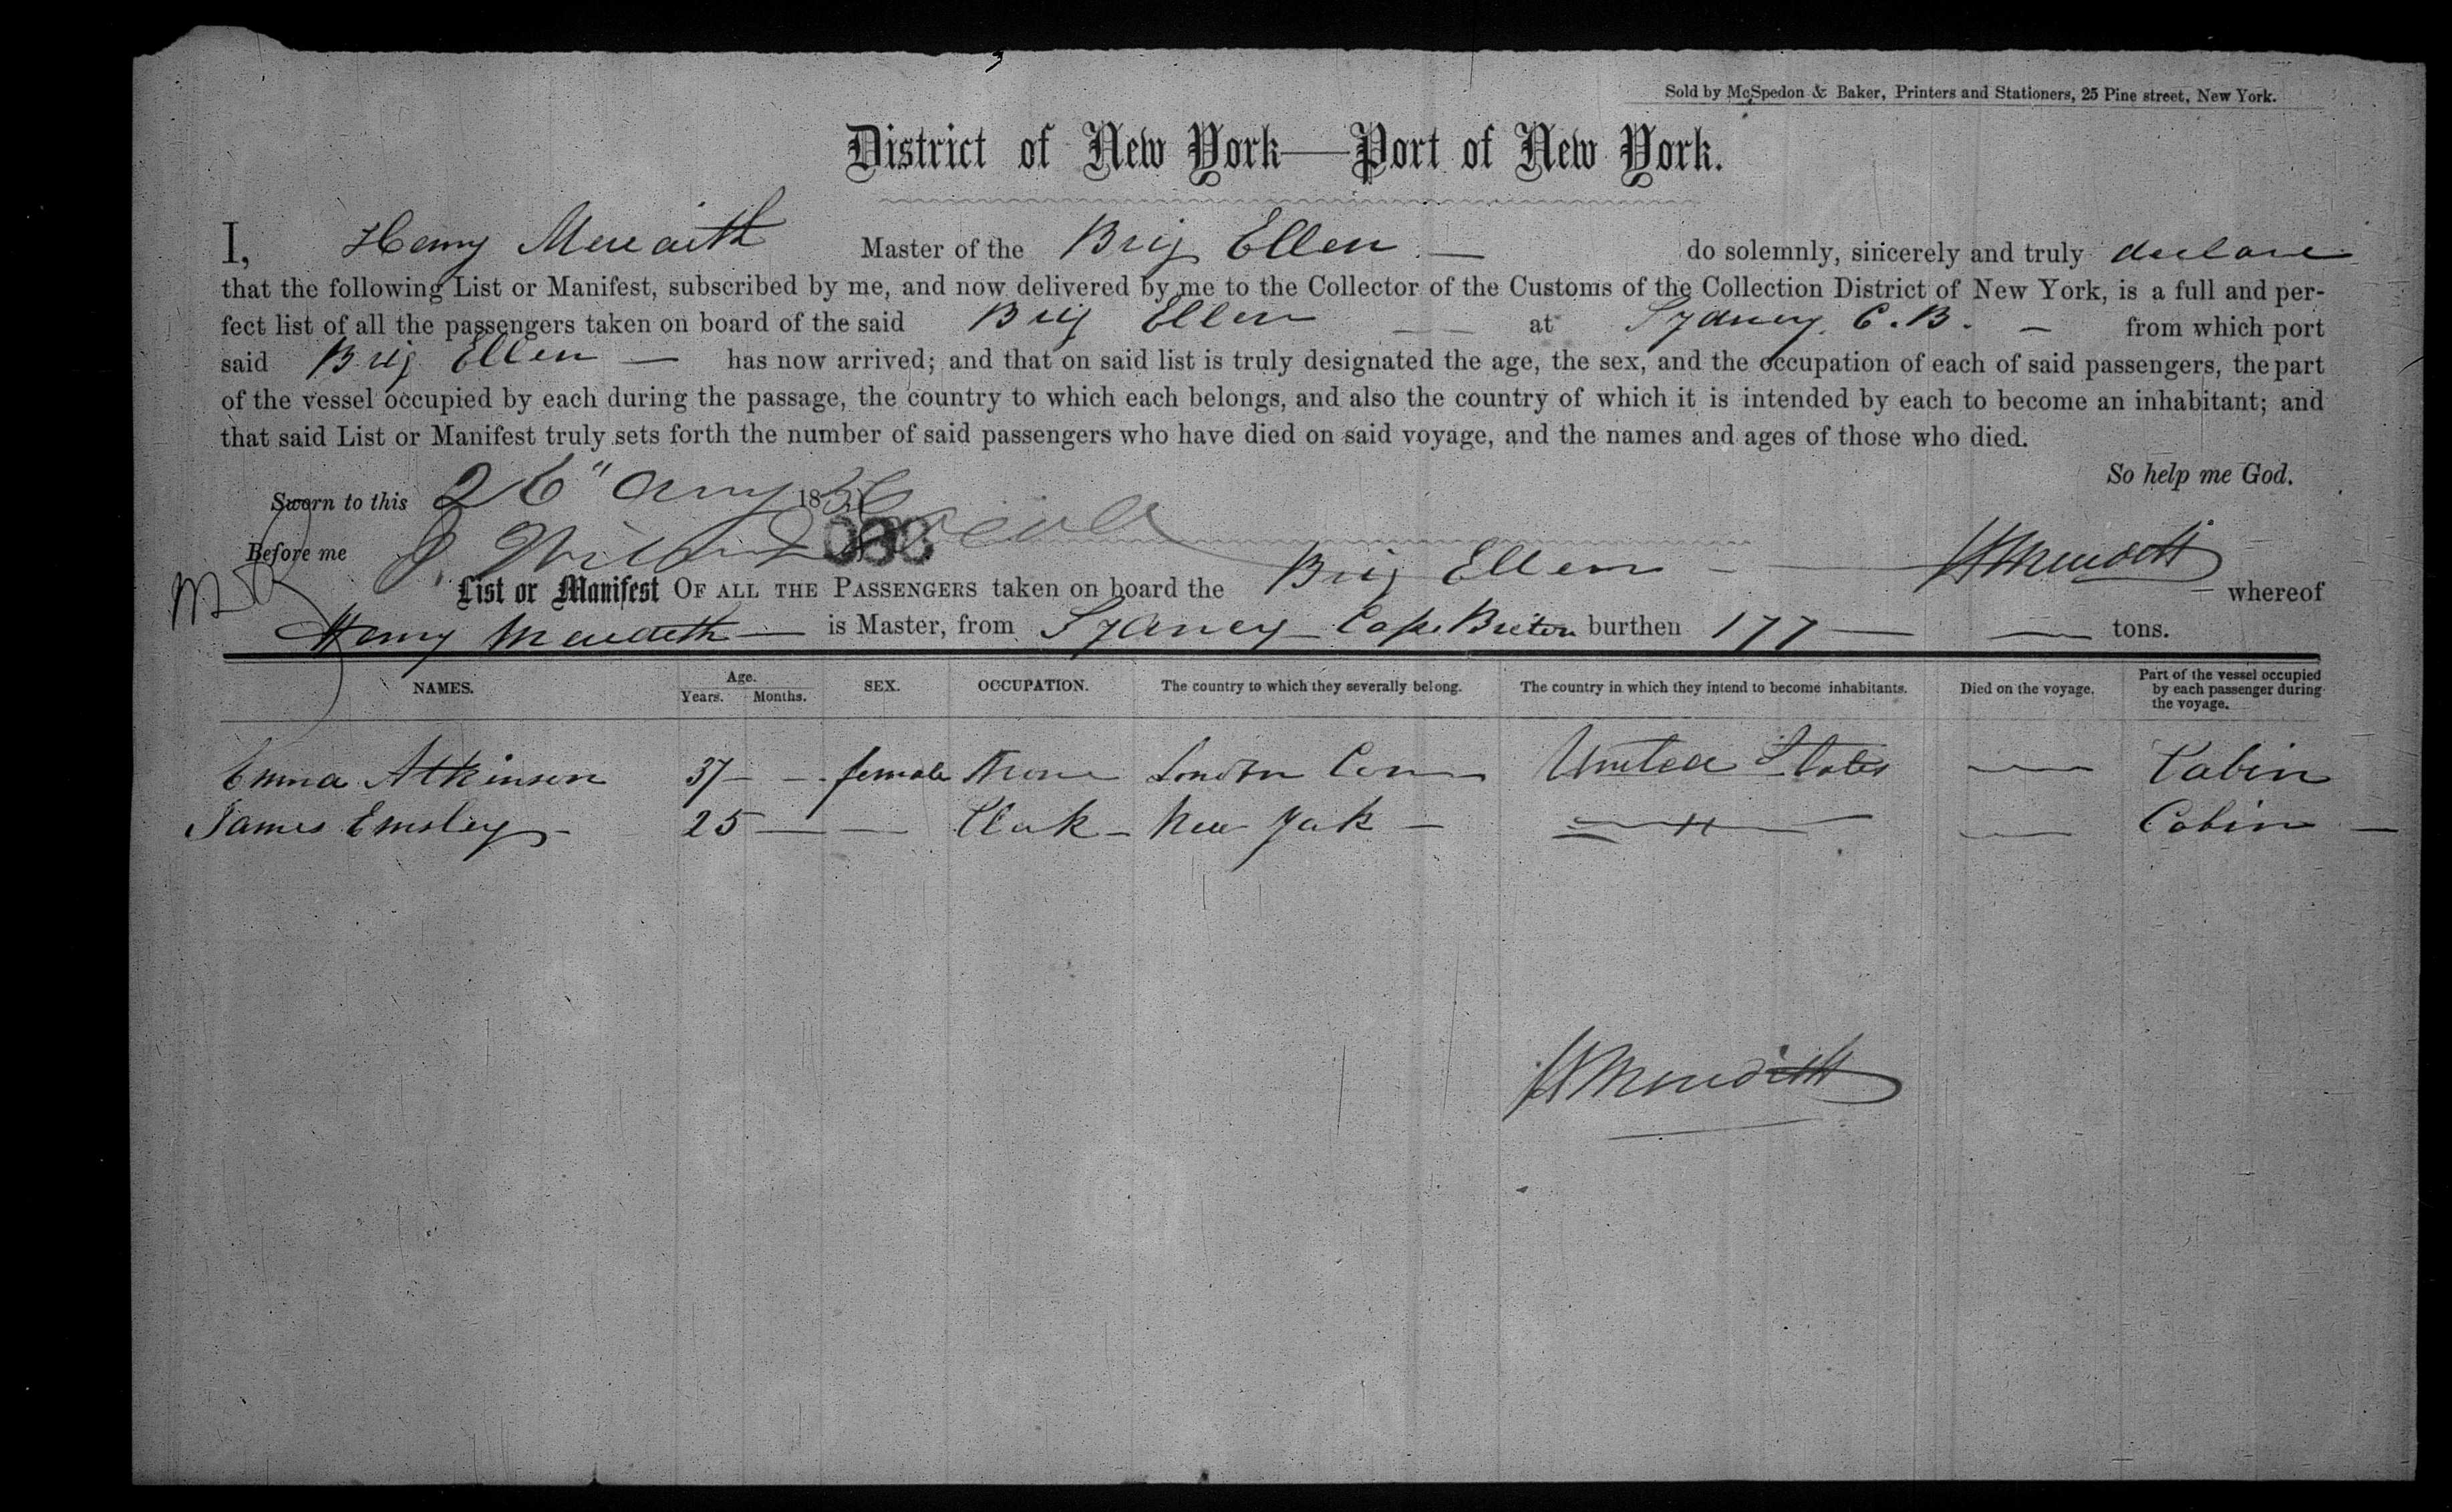 Sold by McSpedon & Baker, Printers and Stationers, 25 Pine street, New York.
District of New York—Port of New York.
I, Henry Meredith Master of the Brig Ellen — do solemnly, sincerely and truly declare
that the following List or Manifest, subscribed by me, and now delivered by me to the Collector of the Customs of the Collection District of New York, is a full and per-
fect list of all the passengers taken on board of the said Brig Ellen — — at Sydney C. B. — from which port
said Brig Ellen — has now arrived; and that on said list is truly designated the age, the sex, and the occupation of each of said passengers, the part
of the vessel occupied by each during the passage, the country to which each belongs, and also the country of which it is intended by each to become an inhabitant; and
that said List or Manifest truly sets forth the number of said passengers who have died on said voyage, and the names and ages of those who died.
So help me God.
Sworn to this 26" Aug 1856
Before me J.
H Meredith
List or Manifest OF ALL THE PASSENGERS taken on board the Brig Ellen — whereof
Henry Meredith — is Master, from Sydney Cape Breton burthen 177 — — tons.
NAMES. Age. Years. Months. SEX. OCCUPATION. The country to which they severally belong. The country in which they intend to become inhabitants. Died on the voyage. Part of the vessel occupied by each passenger during the voyage.
Emma Atkinson 37 — — female None London — United States — Cabin
James Emsley — 25 — — Clerk — New York — — " — — Cabin —
H Meredith